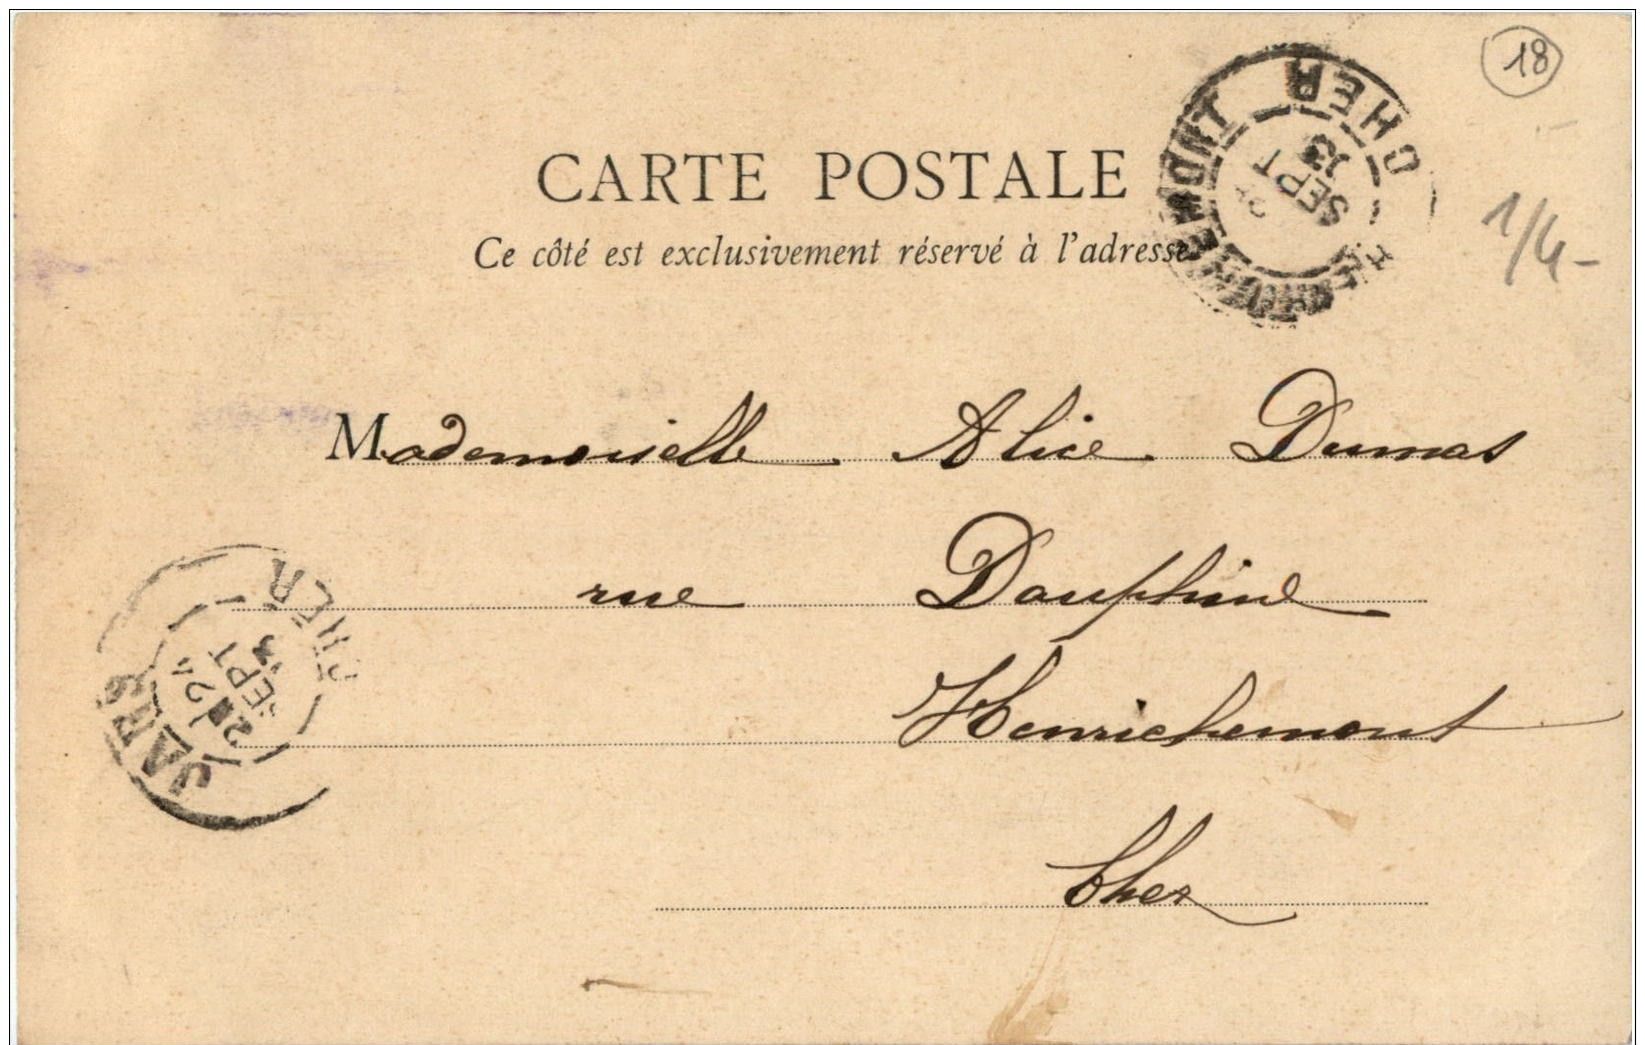 18
CARTE POSTALE
Ce côté est exclusivement réservé à l'adresse
HENRICHEMONT CHER
SEPT
03
1/4-
Mademoiselle Alice Dumas
rue Dauphine
Henrichemont
Cher
JARS CHER
24
SEPT
03